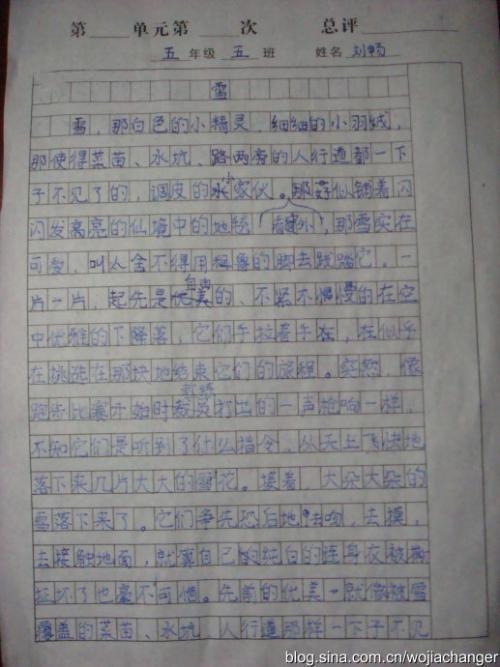 第 单元第 次 总评
五 年级 五 班 姓名 刘畅
雪
雪,那白色的小精灵,细细的小羽绒,
那使得菜苗、水坑、路两旁的人行道都一下
子不见了的,调皮的小家伙。那好似铺着闪
闪发亮的仙境中的地毯,那雪实在
可爱,叫人舍不得用粗鲁的脚去践踏它,一
片一片,起先是自由的、不紧不慢的在空
中优雅的下降落,它们手拉着手在,在似乎
在挑选在那块地结束它们的旅程。突然,像
跑步比赛开始时裁判打出的一声枪响一样,
不知它们是听到了什么指令,从天上飞快地
落下来几片大大的雪花。接着,大朵大朵的
雪落下来了。它们争先恐后地去吻,去摸,
去接触地面,就算自己的纯白的连身衣被
坏了也毫不可惜。先前的优美一就像被雪
覆盖的菜苗、水坑、人行道那样一下子不见
blog.sina.com.cn/wojiachanger